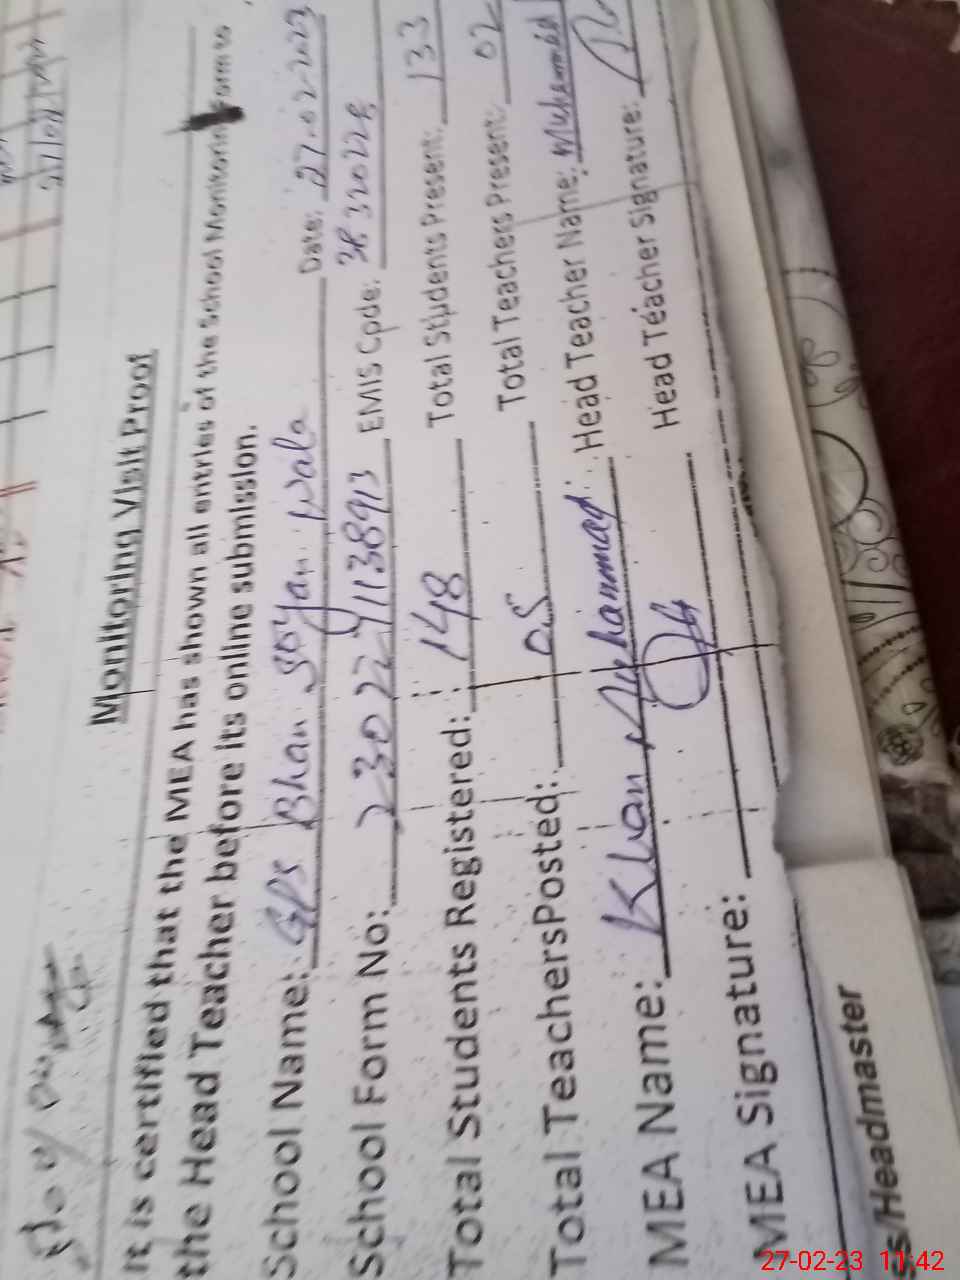 Monitoring Visit Proof
It is certified that the MEA has shown all entries of the School Monitoring Form to
the Head Teacher before its online submission.
School Name: GPS Bhan Wala Date: 27-02-2023
School Form No: 2302271138913 EMIS Code: 38320228
Total Students Registered: 148 Total Students Present: 133
Total Teachers Posted: 05 Total Teachers Present: 02
MEA Name: Khan Muhammad Head Teacher Name: Muhammad
MEA Signature: Head Teacher Signature:
ss/Headmaster
27-02-23 11:42